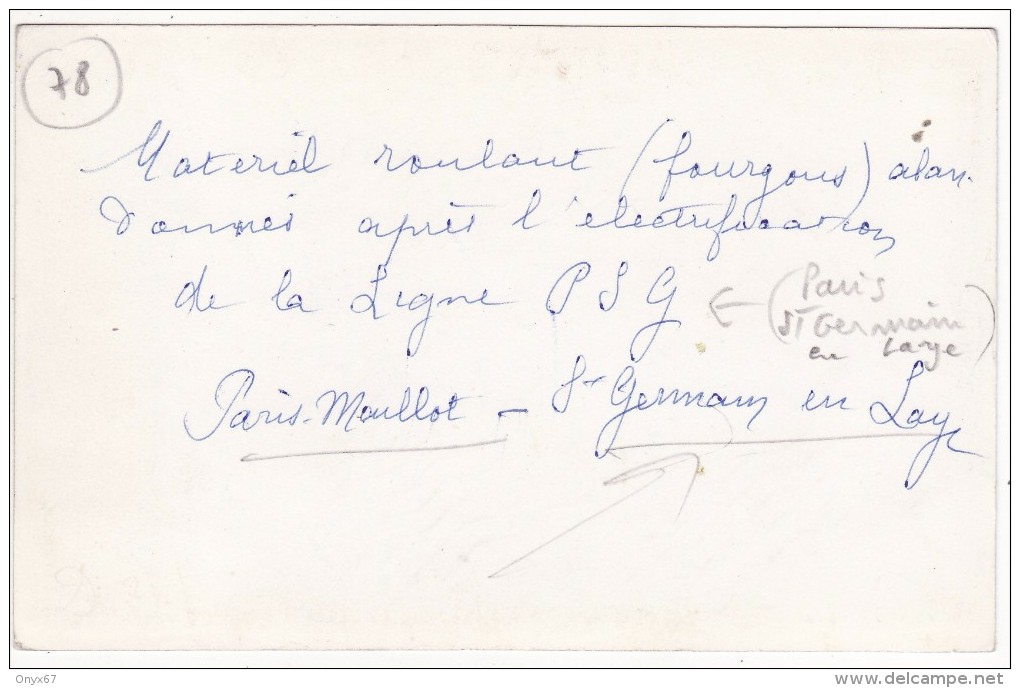 78
Materiel roulant (fourgons) aban-
donnés après l'électrification
de la Ligne PSG
(Paris
St Germain
en Laye)
Paris-Maillot - St Germain en Laye
Onyx67
www.delcampe.net